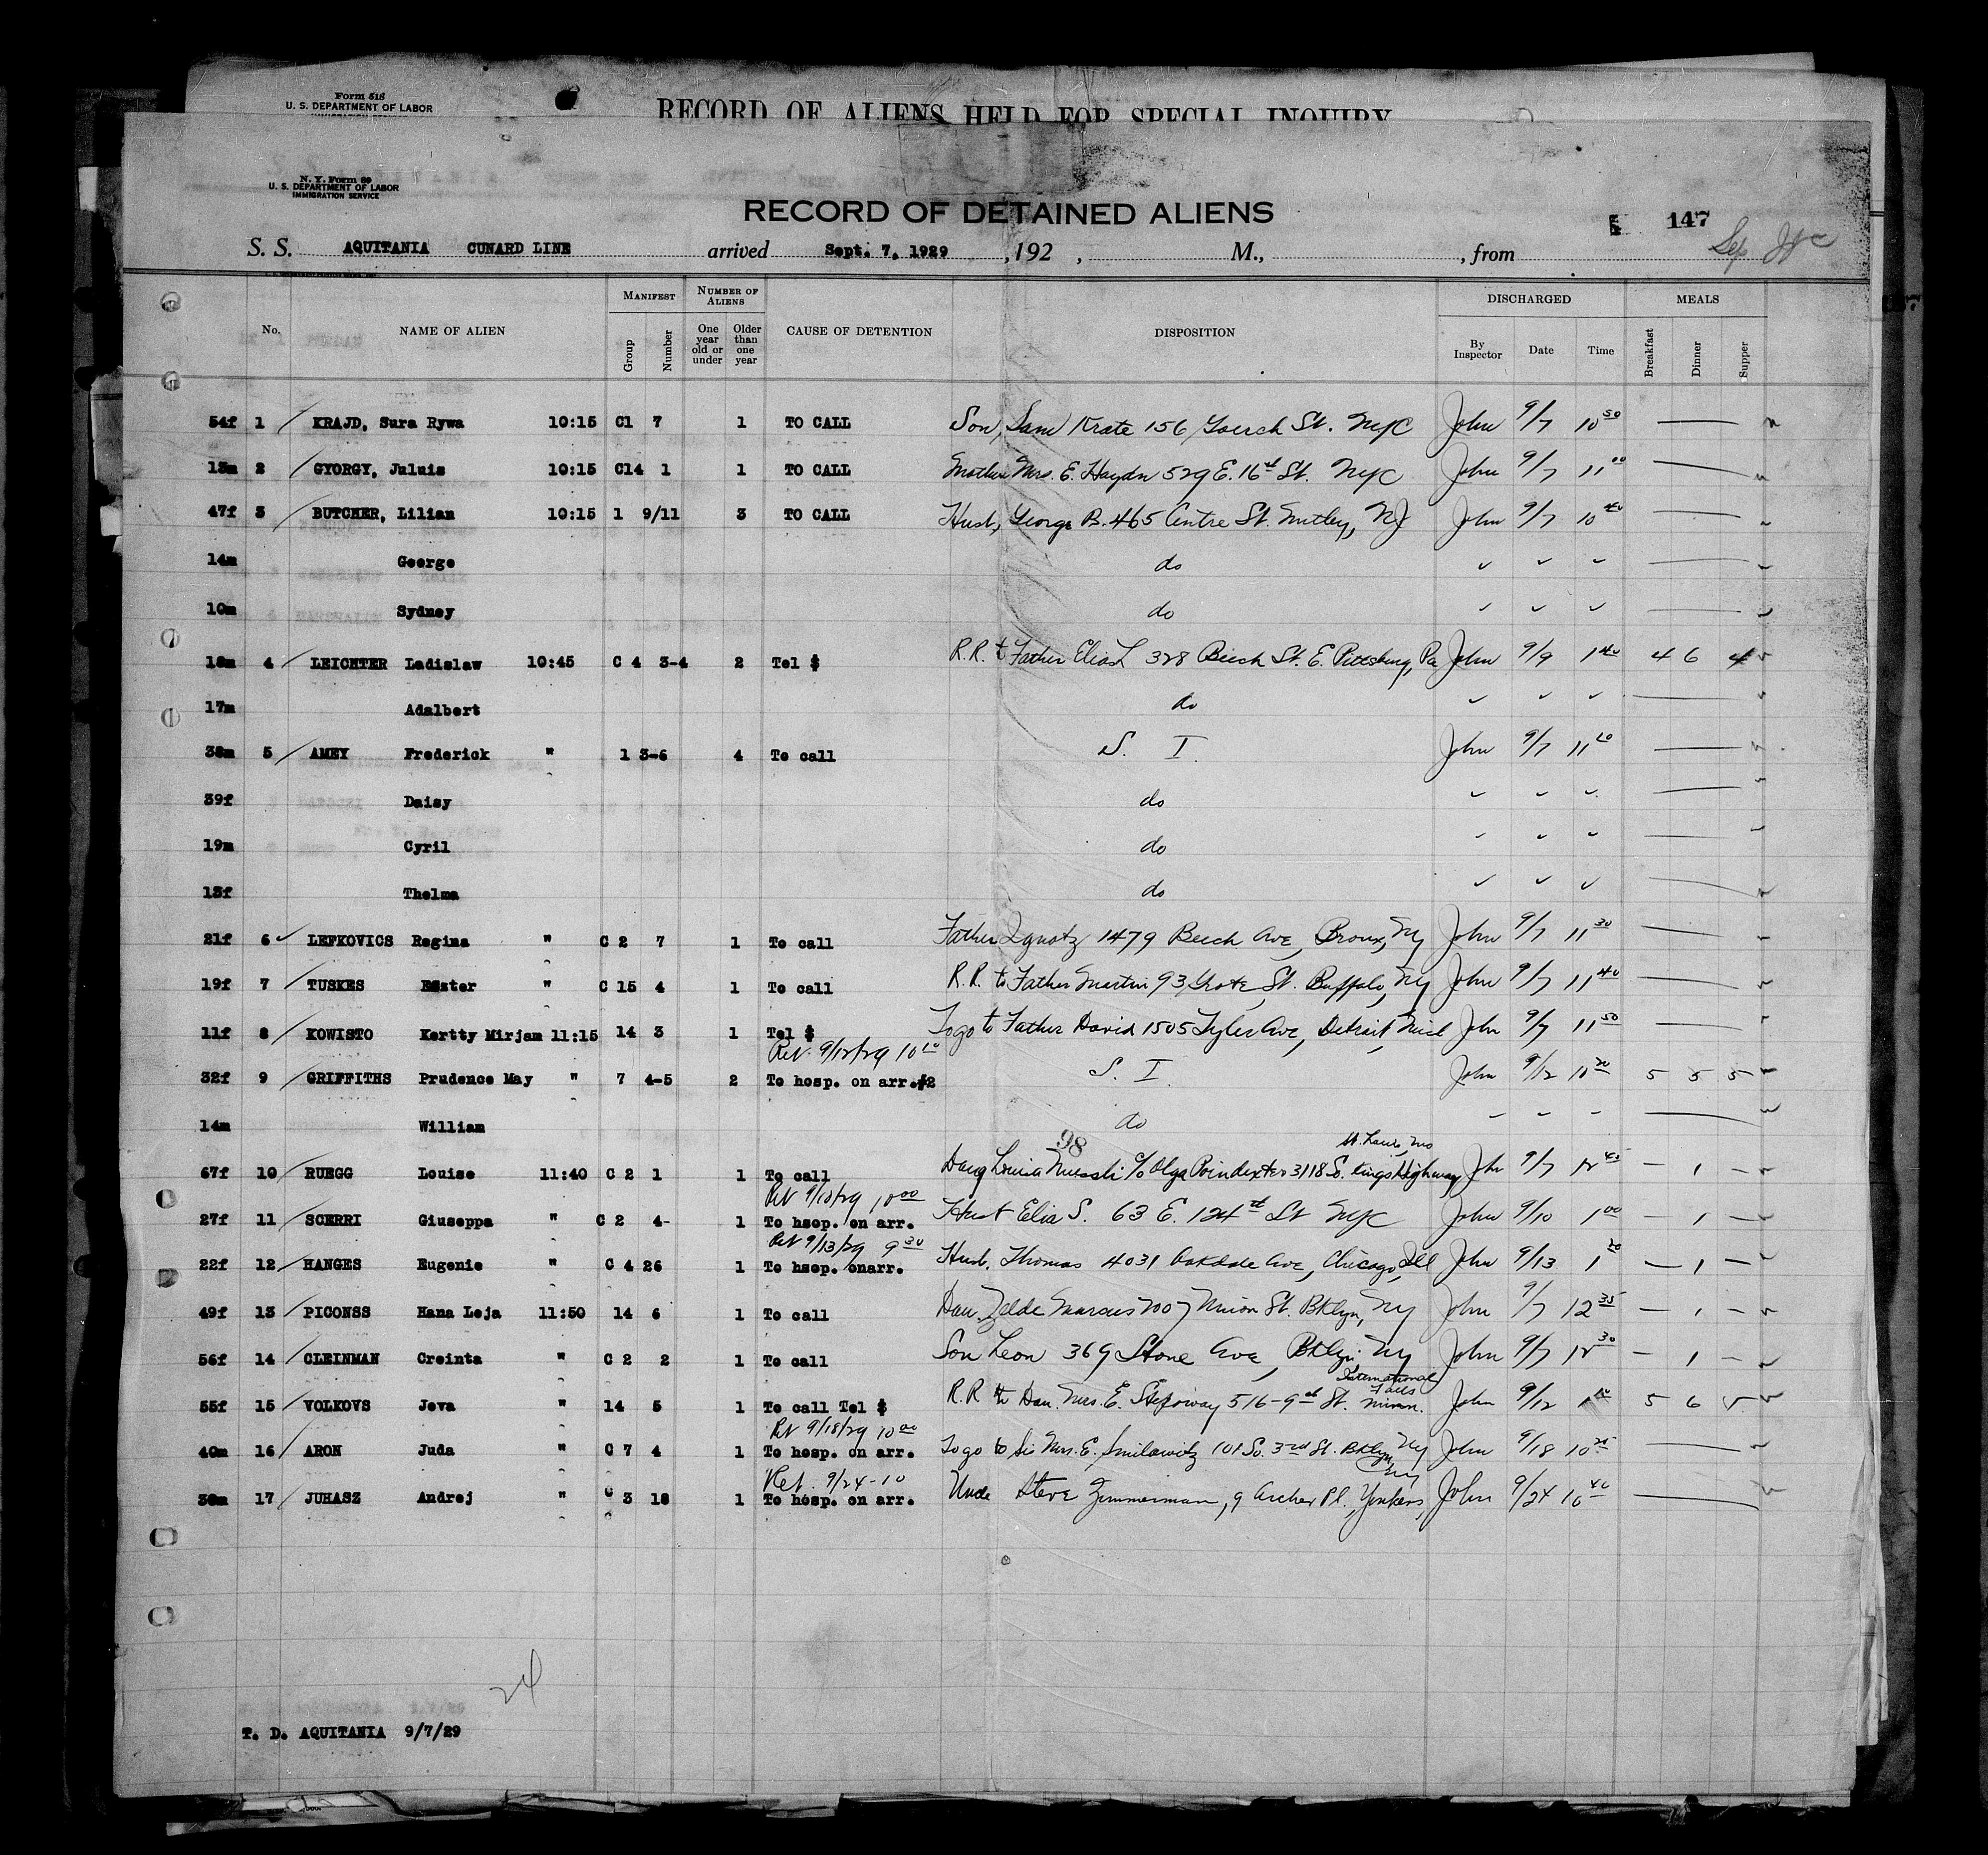 Form 515
U. S. DEPARTMENT OF LABOR
RECORD OF ALIENS HELD FOR SPECIAL INQUIRY
N. Y. Form 89
U. S. DEPARTMENT OF LABOR
IMMIGRATION SERVICE
RECORD OF DETAINED ALIENS
147
S. S. AQUITANIA CUNARD LINE arrived Sept. 7, 1929 , 192 , M., , from
Sep
No. NAME OF ALIEN MANIFEST Group Number NUMBER OF ALIENS One year old or under Older than one year CAUSE OF DETENTION DISPOSITION DISCHARGED By Inspector Date Time MEALS Breakfast Dinner Supper
54f 1 KRAJD, Sura Rywa 10:15 C1 7 1 TO CALL Son, Sam Krate 156 Goerck St. NYC John 9/7 10 50
15m 2 GYORGY, Juluis 10:15 C14 1 1 TO CALL Mother Mrs. E. Haydn 529 E. 16th St. NYC John 9/7 11 00
47f 3 BUTCHER, Lilian 10:15 1 9/11 3 TO CALL Husb, George B. 465 Centre St. Nutley, NJ John 9/7 10 40
14m George do
10m Sydney do
18m 4 LEICHTER Ladislaw 10:45 C 4 3-4 2 Tel $ R.R. to Father Elias L 328 Beech St. E. Pittsburg, Pa John 9/9 1 40 4 6 4
17m Adalbert do
38m 5 AMEY Frederick " 1 3-6 4 To call S. I. John 9/7 11 20
39f Daisy do
19m Cyril do
13f Thelma do
21f 6 LEFKOVICS Regina " C 2 7 1 To call Father Ignatz 1479 Beech Ave, Bronx, NY John 9/7 11 30
19f 7 TUSKES Ester " C 15 4 1 To call R.R. to Father Martin 93 Grote St. Buffalo, NY John 9/7 11 40
11f 8 KOWISTO Kertty Mirjam 11:15 14 3 1 Tel $ To go to Father David 1505 Tyler Ave, Detroit, Mich John 9/7 11 50
Ret. 9/12/29 10 10
32f 9 GRIFFITHS Prudence May " 7 4-5 2 To hosp. on arr.#2 S. I. John 9/12 10 20 5 5 5
14m William do
98
St. Louis, Mo
67f 10 RUEGG Louise 11:40 C 2 1 1 To call Daug Louisa c/o Olga Poindexter 3118 So. Kings Highway John 9/7 12 45 — 1 —
Ret 9/10/29 10 00
27f 11 SCERRI Giuseppa " C 2 4- 1 To hsop. on arr. Hust Elia S. 63 E. 124th St NYC John 9/10 1 00 — 1 —
Ret 9/13/29 9 30
22f 12 HANGES Eugenie " C 4 26 1 To hsop. onarr. Husb. Thomas 4031 Oakdale Ave, Chicago, Ill John 9/13 1 20 — 1 —
49f 13 PICONSS Hana Leja 11:50 14 6 1 To call Dau. Zelda Marcus 2007 Union St. Bklyn, NY John 9/7 12 35 — 1 —
56f 14 CLEINMAN Creinta " C 2 2 1 To call Son Leon 369 Stone Ave, Bklyn, NY John 9/7 12 30 — 1 —
International Falls
55f 15 VOLKOVS Jeva " 14 5 1 To call Tel $ R.R. to Dau. Mrs. E. 516-9th St. Minn. John 9/12 5 6 5
Ret 9/18/29 10 00
40m 16 ARON Juda " C 7 4 1 To hosp. on arr. To go to Sis Mrs. E. Smilowitz 101 So. 3rd St. Bklyn, NY John 9/18 10 25
Ret. 9/24-10
38m 17 JUHASZ Andrej " C 3 18 1 To hosp. on arr. Uncle Steve Zimmerman, 9 Archer Pl., Yonkers, NY John 9/24 10 40
24
T. D. AQUITANIA 9/7/29